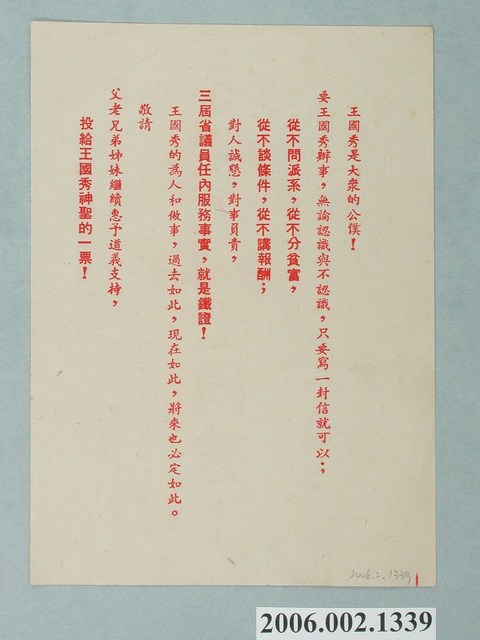 王國秀是大衆的公僕！
要王國秀辦事，無論認識與不認識，只要寫一封信就可以；
從不問派系，從不分貧富，
從不談條件，從不講報酬；
對人誠懇，對事負責，
三屆省議員任內服務事實，就是鐵證！
王國秀的為人和做事，過去如此，現在如此，將來也必定如此。
敬請
父老兄弟姊妹繼續惠予道義支持，
投給王國秀神聖的一票！
2006.2.1339
2006.002.1339